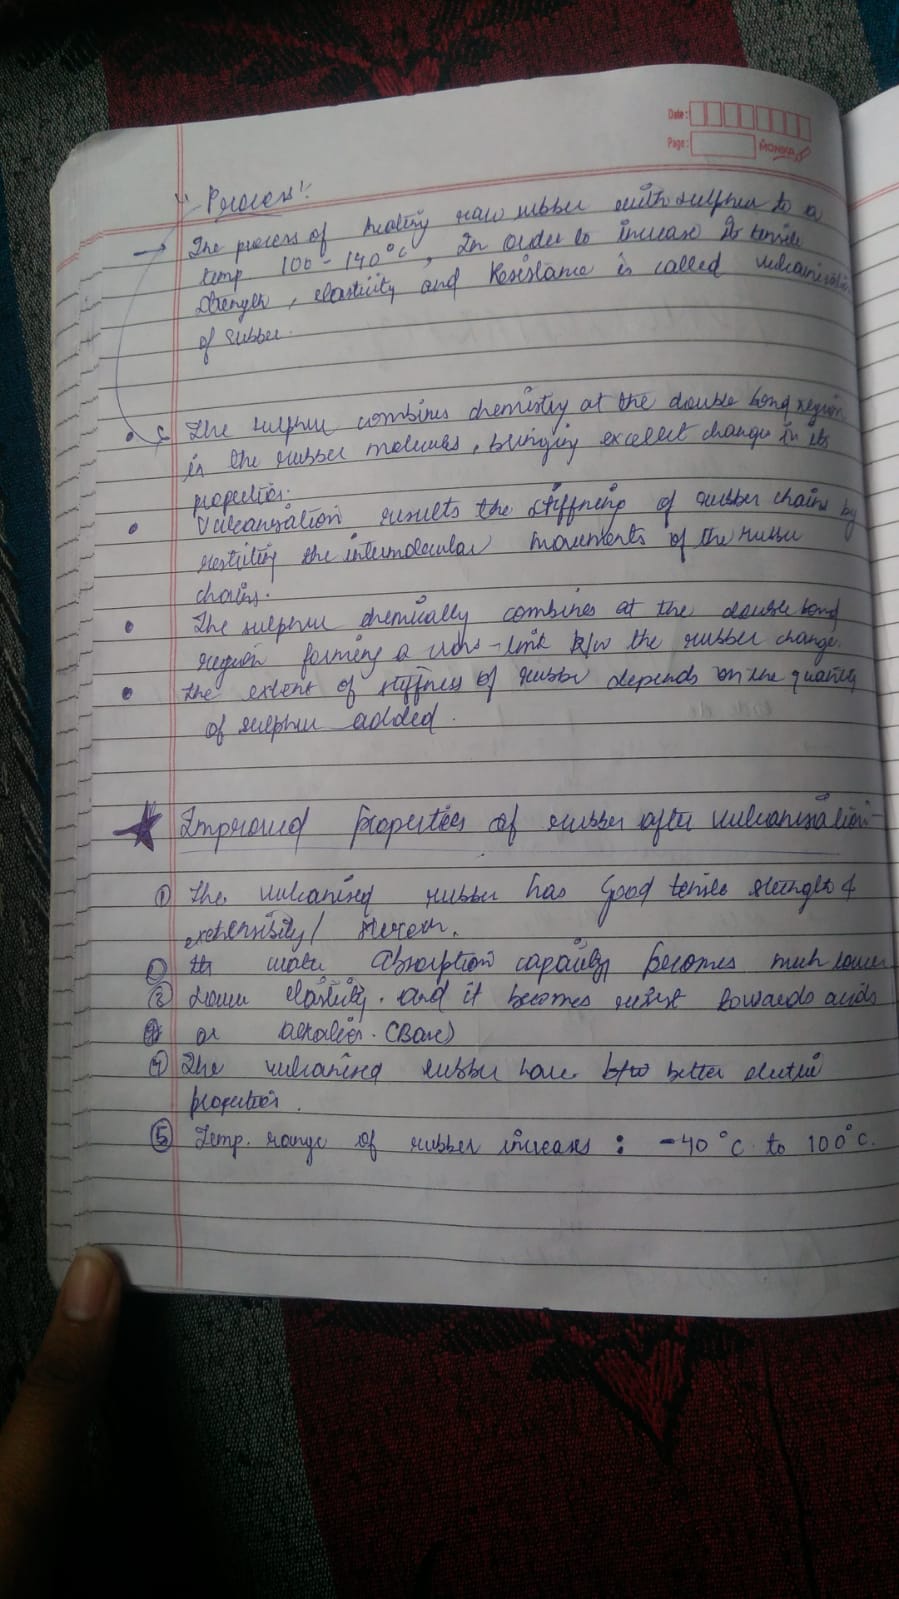 Date:
Page:
MONIKA
" Process!
→ The process of heating raw rubber with sulphur to a
temp 100-140°C, In order to increase its tensile
strength, elasticity and Resistance is called vulcanisation
of rubber.
The sulphur combines chemistry at the double bond region
in the rubber molecules, bringing excellent change in its
properties.
• Vulcanisation results the stiffning of rubber chains by
the intermolecular movements of the rubber
chains.
• The sulphur chemically combines at the double bond
region forming a cross-link b/w the rubber change.
• the extent of stiffness of rubber depends on the quantity
of sulphur added.
★ Improved properties of rubber after vulcanisation-
① The vulcanised rubber has good tensile strength &
extensibility/
water absorption capacity becomes much lower
③ Lower elasticity. and it becomes towards acids
or alkalies. (Base)
④ The vulcanised rubber have better electric
properties.
⑤ Temp. range of rubber increases : -40°C to 100°C.